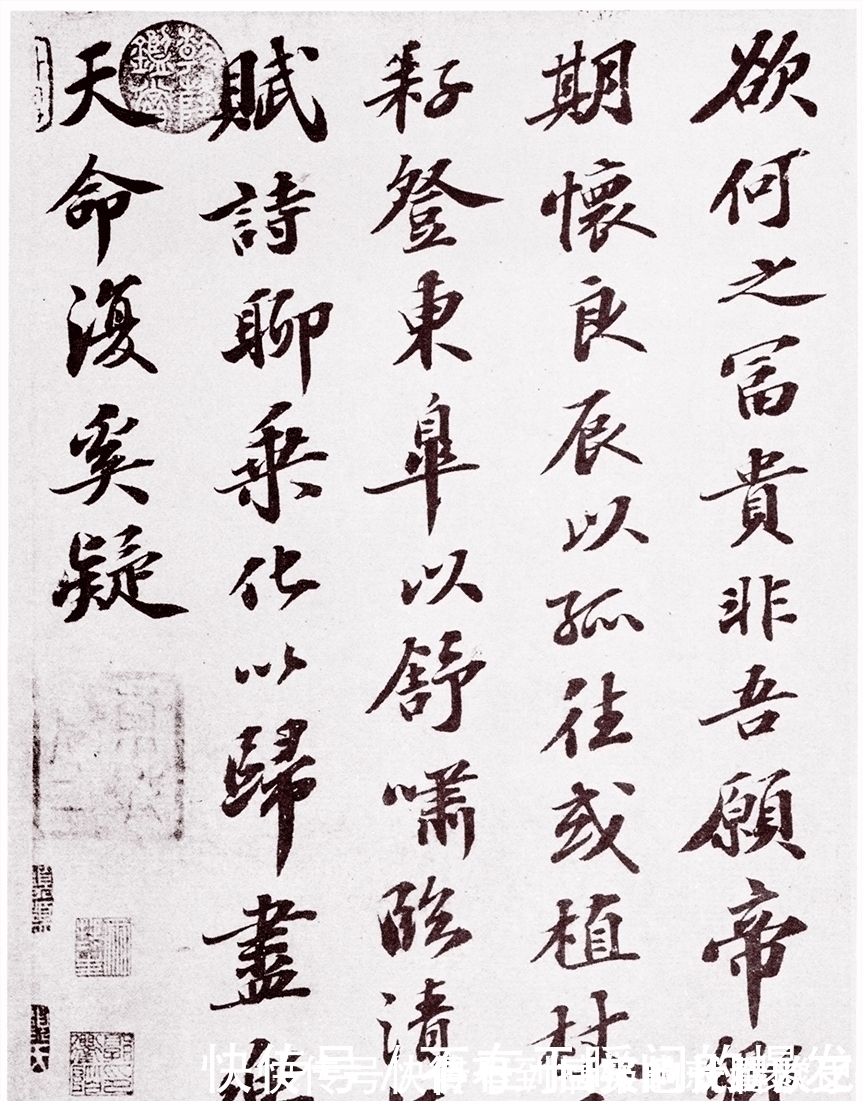 欲何之冨貴非吾願帝
期懷良辰以孤往或植杖
耔登東皋以舒嘯臨清
賦詩聊乘化以歸盡
天命復奚疑
乾隆鑑賞
快传号 /